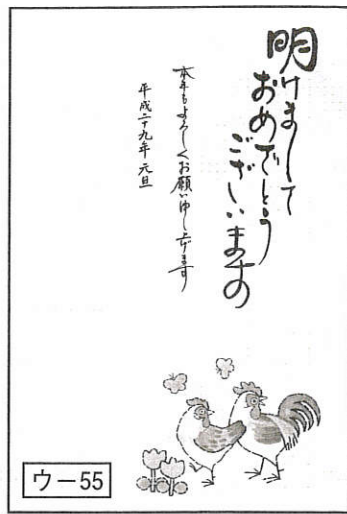 明けまして
おめでとう
ございます
本年もよろしくお願い申し上げます
平成二十九年 元旦
ウ－55